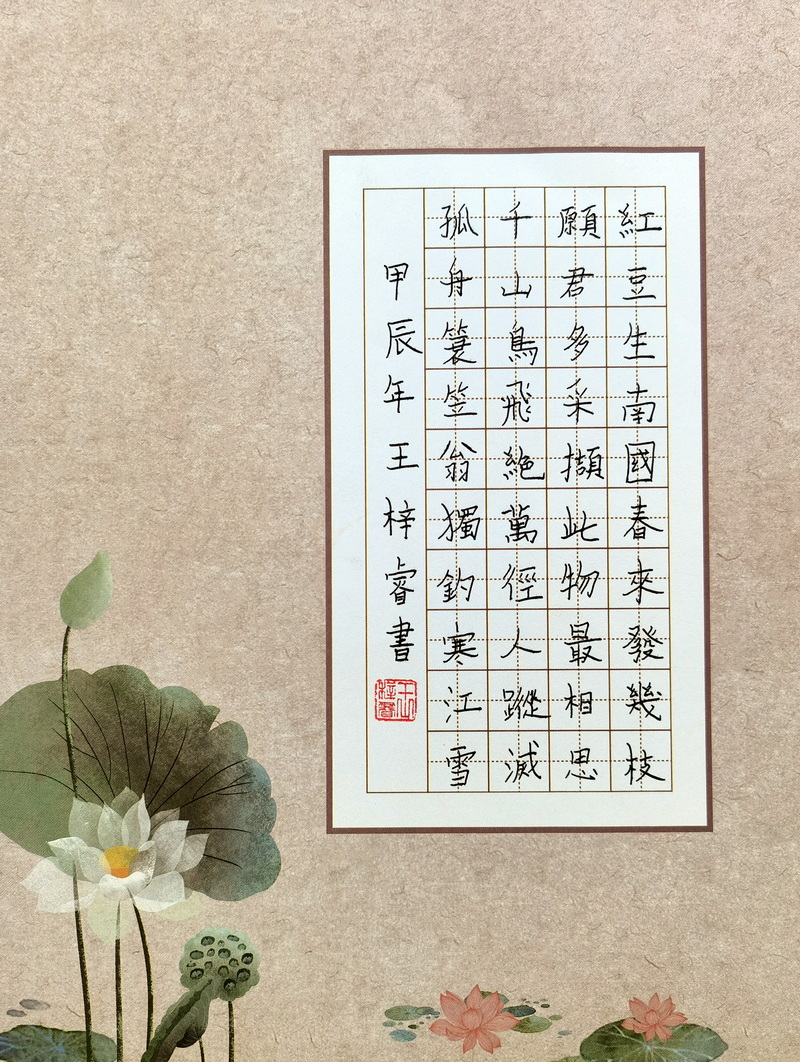 紅豆生南國春來發幾枝
願君多采擷此物最相思
千山鳥飛絕萬徑人蹤滅
孤舟簑笠翁獨釣寒江雪
甲辰年王梓睿書
王梓睿